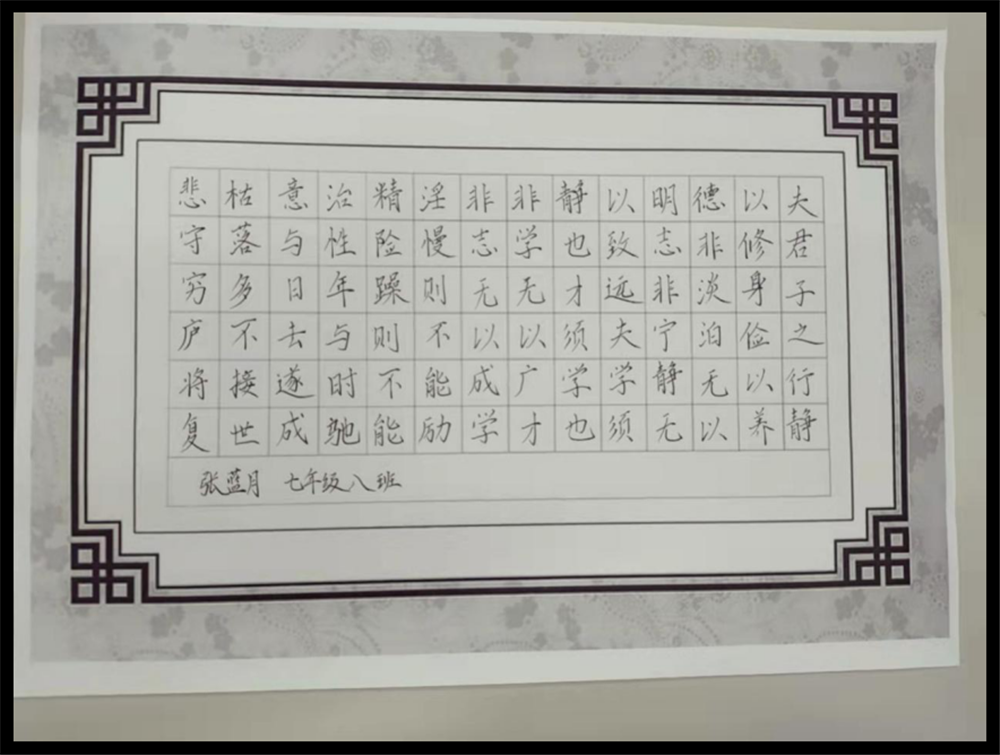 夫君子之行静
以修身俭以养
德非淡泊无以
明志非宁静无
以致远夫学须
静也才须学也
非学无以广才
非志无以成学
淫慢则不能励
精险躁则不能
治性年与时驰
意与日去遂成
枯落多不接世
悲守穷庐将复
张蓝月 七年级八班